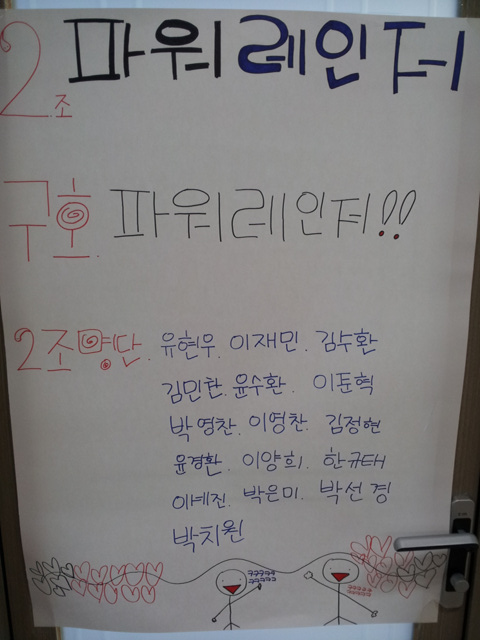 2조 파워레인저
구호 파워레인저!!
2조명단. 유현우. 이재민. 김수환
김민찬. 윤수환. 이준혁
박영찬. 이영찬. 김정현
윤경환. 이양희. 한규태
이예진. 박은미. 박선경
박치원
ㅋㅋㅋㅋㅋ
ㅋㅋㅋㅋㅋ